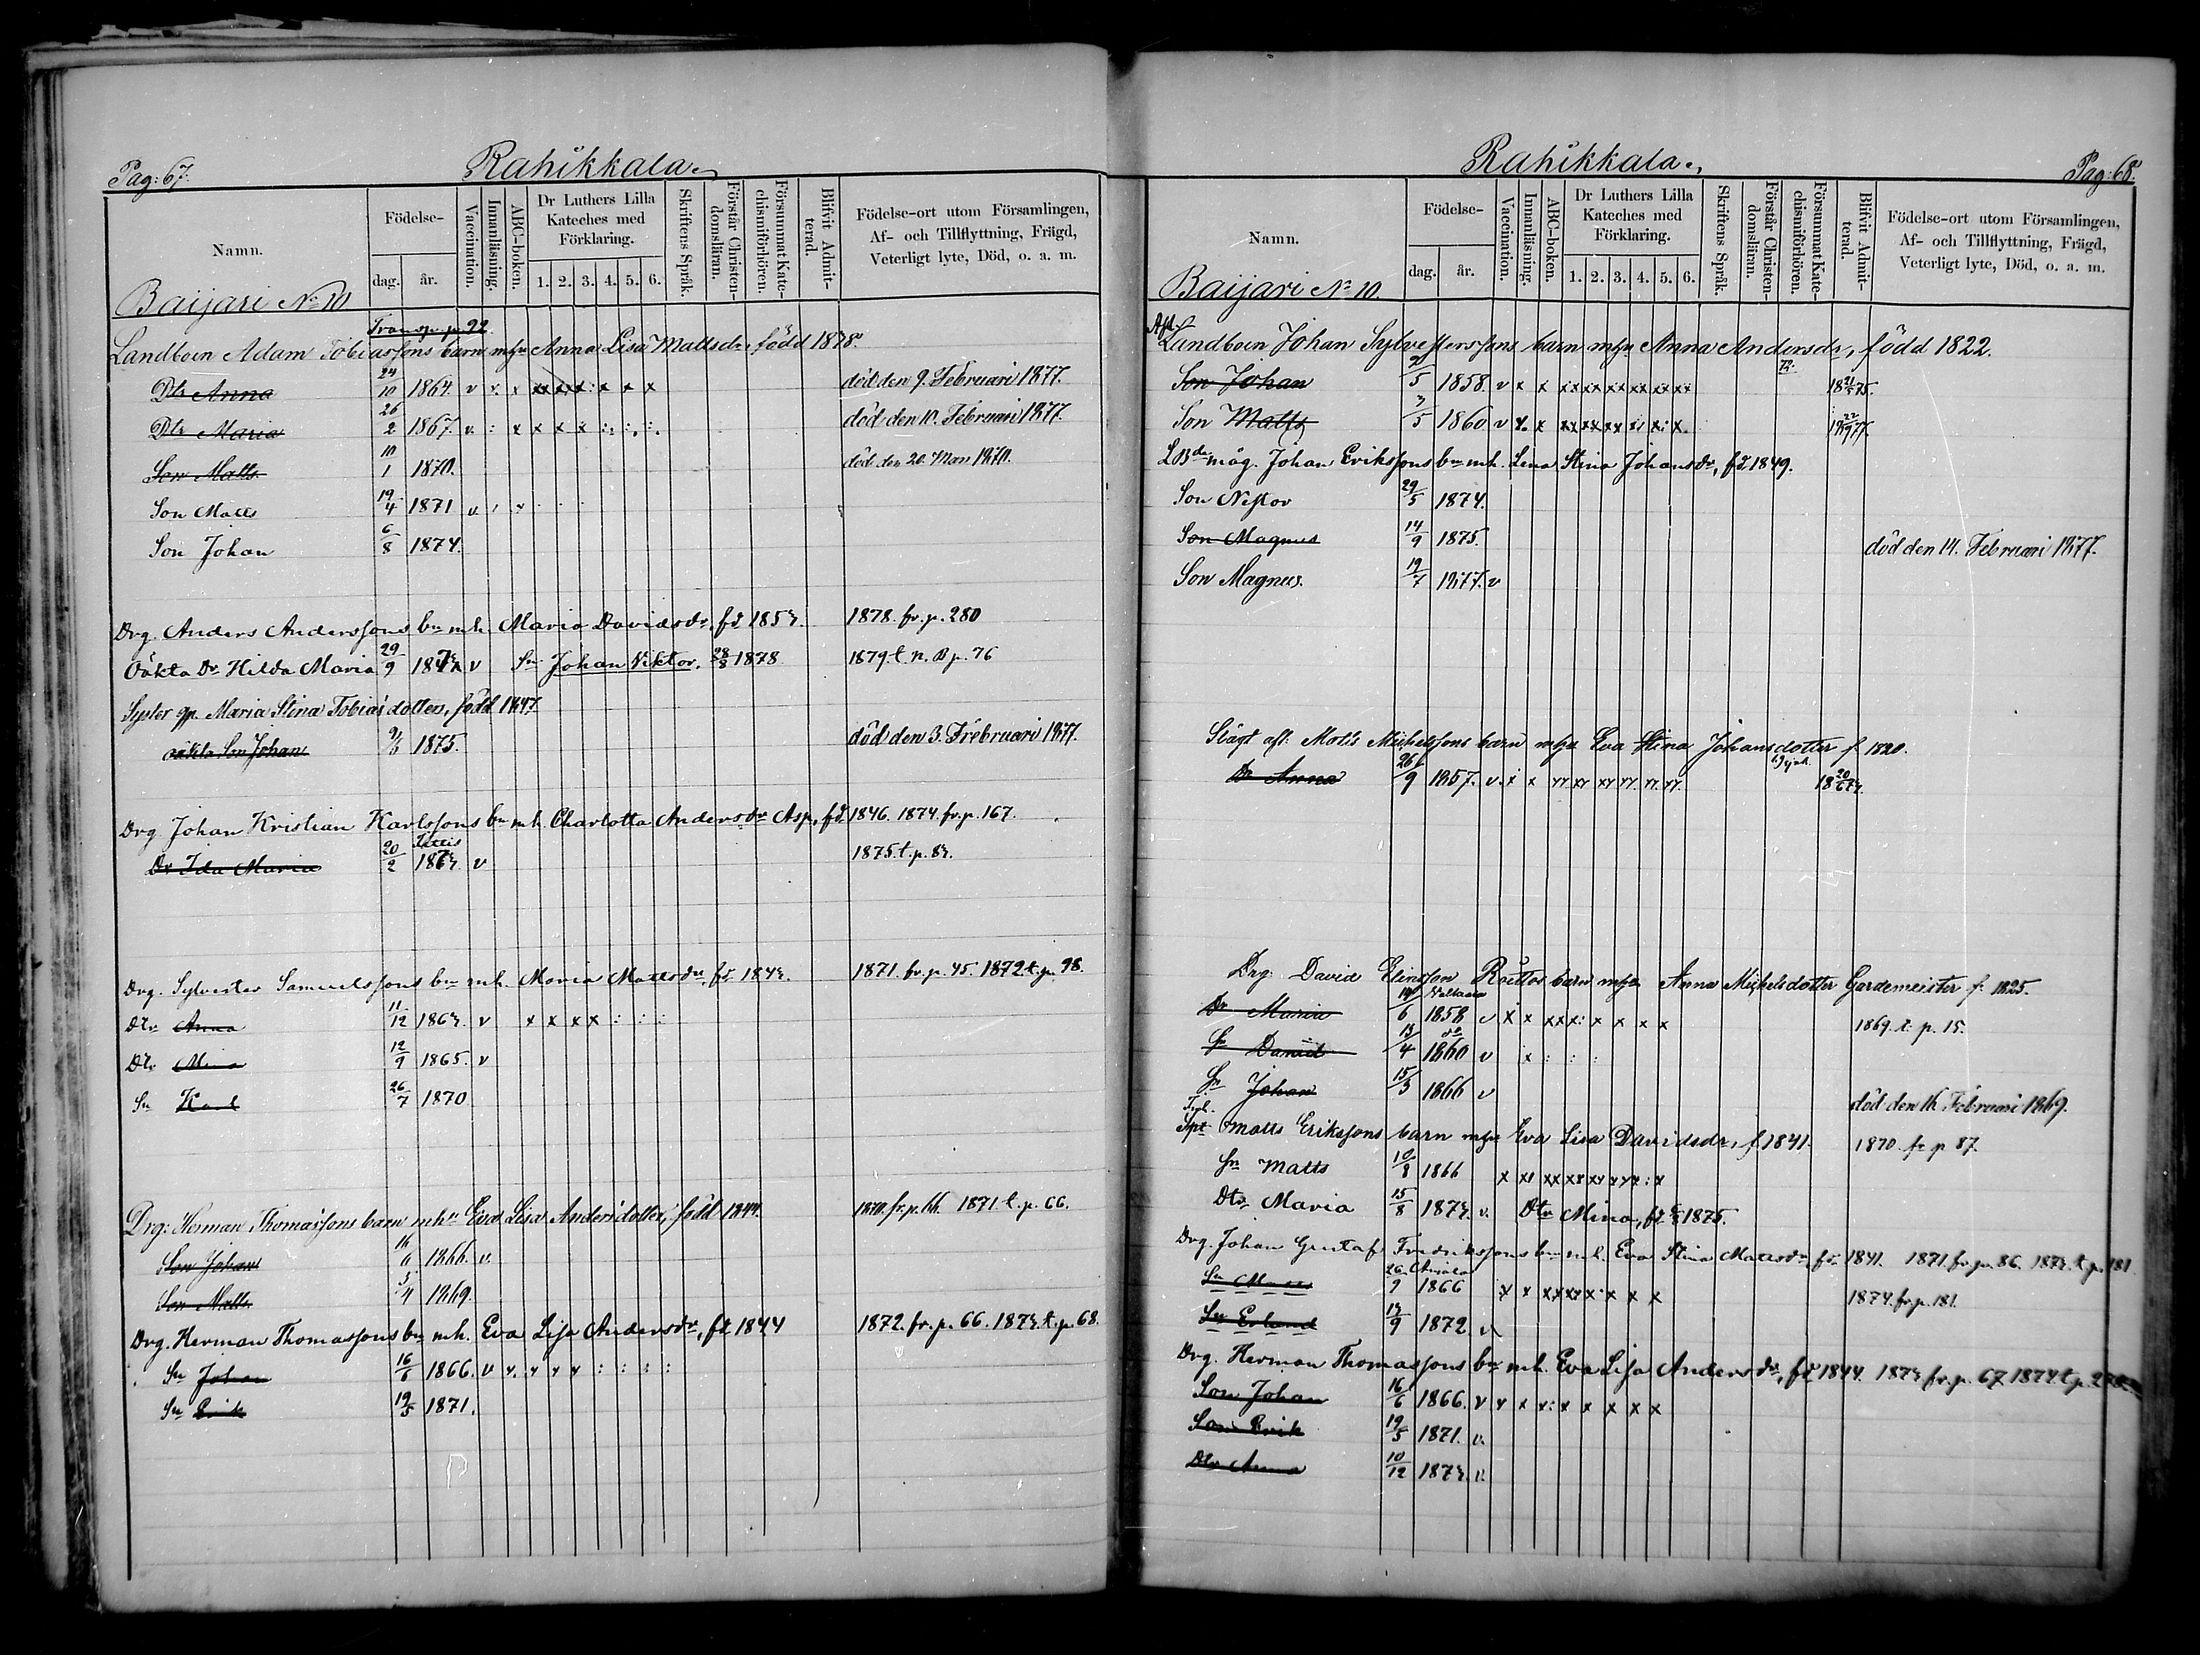 Pag: 67.
Rahikkala.
Namn.
Födelse-
dag. år.
Vaccination.
Innanläsning.
ABC-boken.
Dr Luthers Lilla Kateches med Förklaring.
1. 2. 3. 4. 5. 6.
Skriftens Språk.
Förstår Christendomsläran.
Försummat Katechismiförhören.
Blifvit Admitterad.
Födelse-ort utom Församlingen,
Af- och Tillflyttning, Frägd,
Veterligt lyte, Död, o. a. m.
Baijari No 10
Transp. p. 92
Landboen Adam Tobiassons barn mhu Anna Lisa Mattsdr född 1838.
Dtr Anna 24/10 1864. v död den 9. Februari 1877.
Dtr Maria 26/2 1867. v död den 10. Februari 1877.
Son Matts 10/1 1870. död den 26. Mars 1870.
Son Matts 19/4 1871 v
Son Johan 6/8 1874.
Drg. Anders Anderssons bn mh. Maria Davidsdr, fd 1853. 1878. fr. p. 280
Oäkta Dr Hilda Maria 29/9 1873 v Sn Johan Viktor. 28/3 1878 1879. t. n. B p. 76
Syster qp. Maria Stina Tobiasdotter, född 1847.
oäkta Son Johan 1875. död den 3. Februari 1877.
Drg Johan Kristian Karlssons bn mh. Charlotta Andersdr Asp, fd 1846. 1874. fr. p. 167.
Dr Ida Maria 20/2 1873. v 1875. t. p. 83.
Drg. Sylvester Samuelssons bn mh. Maria Mattsdr, fd. 1843. 1871. fr. p. 45. 1872 t. p. 98.
Dtr Anna 11/12 1863. v x x x x : : :
Dtr Mina 12/9 1865. v
Sn Karl 26/7 1870
Drg: Herman Thomassons barn mhu Eva Lisa Andersdotter, född 1844. 1870. fr. p. 66. 1871. t. p. 66.
Son Johan 16/6 1866. v.
Son Matts 5/4 1869.
Drg. Herman Thomassons bn mh. Eva Lisa Andersdr, fd 1844 1872. fr. p. 66. 1873. t. p. 68.
Sn Johan 16/6 1866. v
Sn Erik 19/5 1871.
Pag: 68.
Rahikkala.
Namn.
Födelse-
dag. år.
Vaccination.
Innanläsning.
ABC-boken.
Dr Luthers Lilla Kateches med Förklaring.
1. 2. 3. 4. 5. 6.
Skriftens Språk.
Förstår Christendomsläran.
Försummat Katechismiförhören.
Blifvit Admitterad.
Födelse-ort utom Församlingen,
Af- och Tillflyttning, Frägd,
Veterligt lyte, Död, o. a. m.
Baijari No 10.
Afl.
Landboen Johan Sylvesterssons barn mhu Anna Andersdr, född 1822.
Son Johan 1858. v x x
Son Matts 3/5 1860 v
LBdemåg. Johan Erikssons bn mh. Lena Stina Johansdr, fd. 1849.
Son Nestor 29/5 1874.
Son Magnus 14/9 1875. död den 14. Februari 1877.
Son Magnus. 19/7 1877. v
Slägt afl: Matts Michelssons barn mhu Eva Stina Johansdotter f 1820.
Dr Anna 26/9 1857. v.
Drg: David Elinsson barn mhu Anna Michelsdotter Gardemeister f: 1825.
Dr Maria 1858 v 1869. t. p. 15.
Sn Daniel 13/4 1860 v
Sn Johan 15/3 1866 v död den 16 Februari 1869.
Matts Erikssons barn mhu Eva Lisa Davidsdr, f. 1841. 1870. fr p 87.
Sn Matts 10/8 1866
Dtr Maria 15/8 1873. v. Dtr Mina, fd 1875.
Drg. Johan Gustaf Fredrikssons bn mh. Eva Stina Mattsdr, fd. 1841. 1871. fr. p. 86. 1873. t. p. 181
1866 1874. fr. p. 181.
Sn Erland 13/9 1872. v
Drg. Herman Thomassons bn mh. Eva Lisa Andersdr, fd 1844. 1873 fr. p. 67. 1874. t. p.
Son Johan 16/6 1866. v
Son Erik 19/5 1871. v.
Dtr Anna 10/12 1873. v.